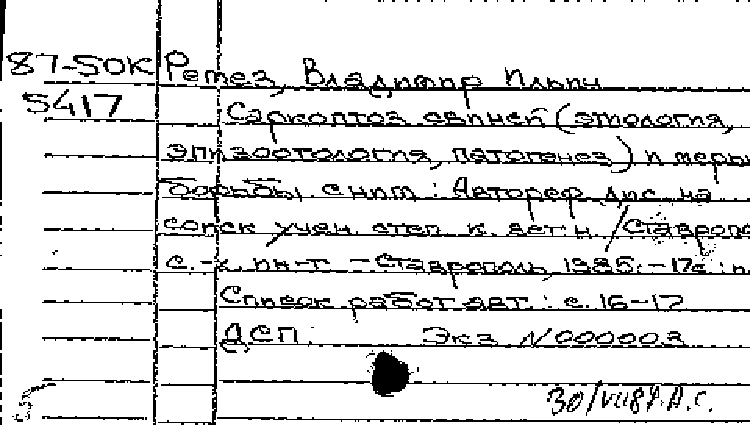 87-50К Ретез, Владимир Ильич
5417 Саркоптоз свиней (этиология,
эпизоотология, патогенез) и меры
борьбы с ним : Автореф. дис. на
соиск. учен. степ. к. вет. н. / Ставропо
с.-х. ин-т. - Ставрополь, 1985. - 17с. : и
Список работ авт. : с. 16-17
ДСП. Экз. N 000003
30/VII87. А.С.
5